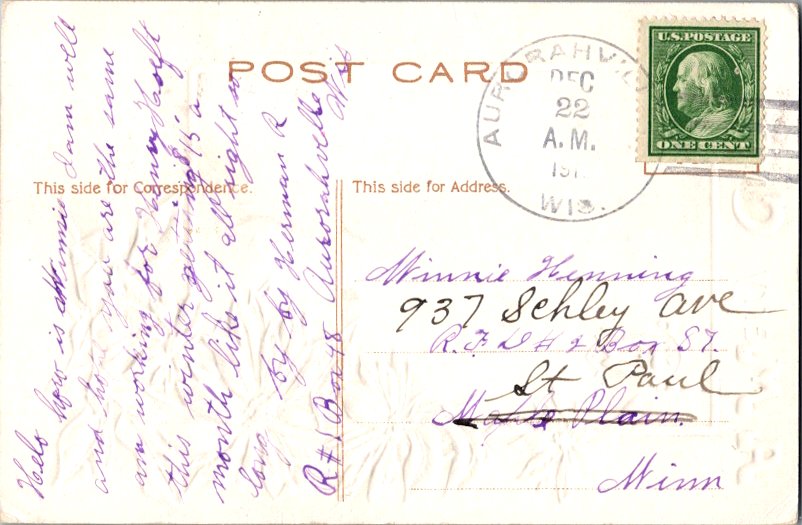 POST CARD
AURORAHVI
DEC
22
A.M.
191
WIS.
U.S. POSTAGE
ONE CENT
This side for Correspondence.
This side for Address.
Helo how is Minnie I am well
and hope you are the same
am working for Henry
this winter getting $15 a
month like it all right so
long by by Herman R
R # 1 Box 48 Aurorahville Wis
Minnie Henning
937 Schley Ave
R.F.D # 2 Box 57.
St Paul
Maple Plain.
Minn